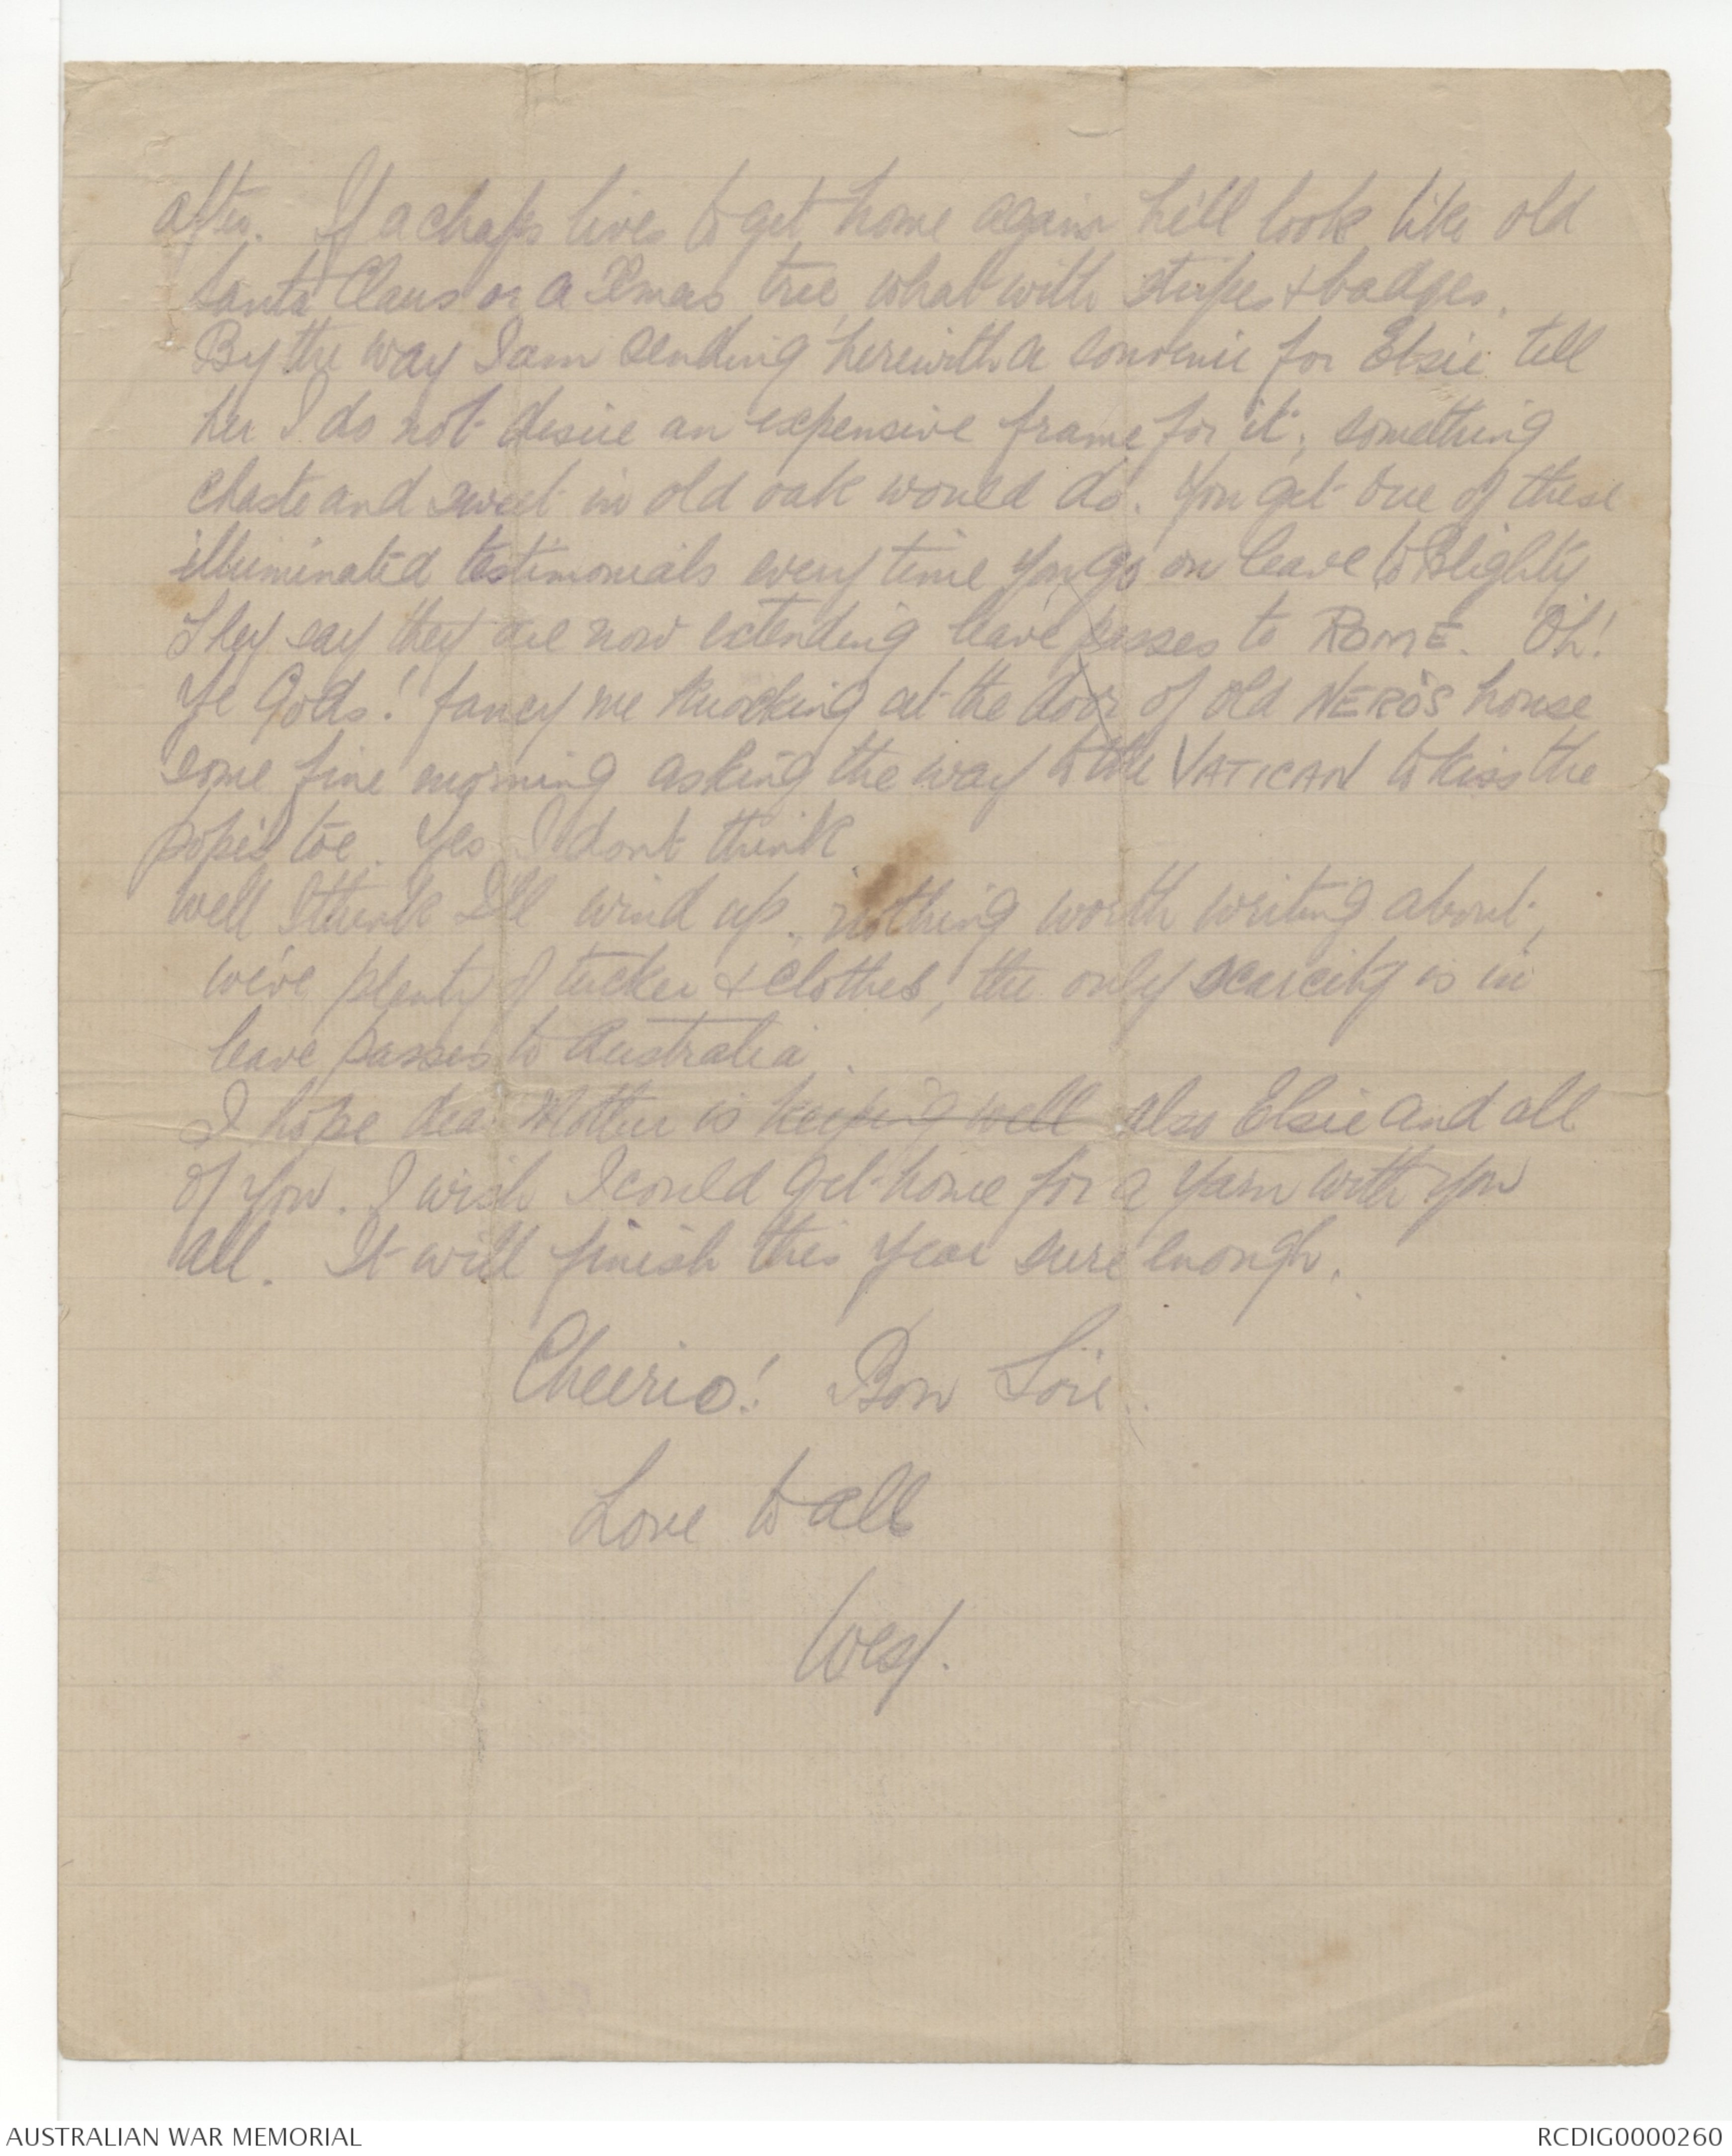 after. If a chaps lives to get home again he'll look like old
Santa Claus or a Xmas tree, what with stripes & badges.
By the way I am sending herewith a souvenir for Elsie tell
her I do not desire an expensive frame for it; something
chaste and sweet in old oak would do. You get one of these
illuminated testimonials every time you go on leave to Blighty
They say they are now extending leave passes to ROME. Oh!
Ye Gods! fancy me knocking at the door of old NERO'S house
some fine morning asking the way to the VATICAN to kiss the
popes toe. Yes I dont think
Well I think I'll wind up, nothing worth writing about;
we've plenty of tucker & clothes, the only scarcity is in
leave passes to Australia.
I hope dear Mother is keeping well also Elsie and all
of you. I wish I could get home for a yarn with you
all. It will finish this year sure enough.
Cheerio! Bon Soir..
Love to all
Wes.
AUSTRALIAN WAR MEMORIAL
RCDIG0000260